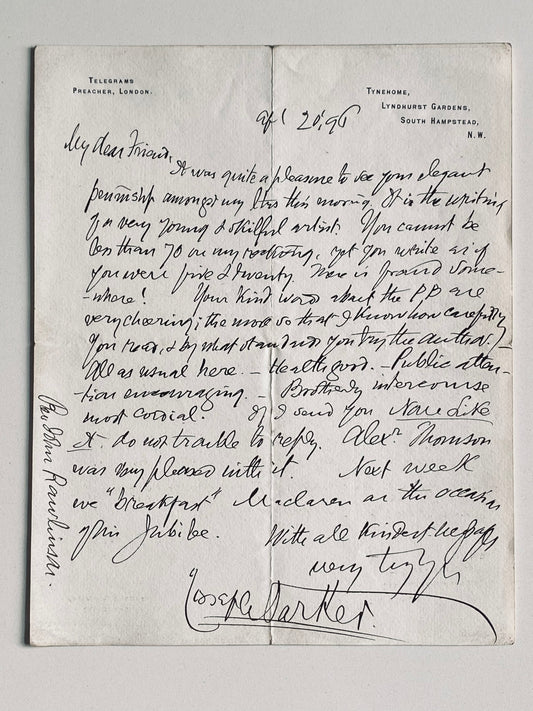 TELEGRAMS
PREACHER, LONDON.
TYNEHOME,
LYNDHURST GARDENS,
SOUTH HAMPSTEAD,
N.W.
Apl 20, 96
My dear Friend,
It was quite a pleasure to see your elegant
penmship amongst my this morning. It is the writing
of a very young & skilful artist. You cannot be
less than 70 on my reckoning, yet you write as if
you were five & twenty. There is fraud some-
-where! Your kind words about the P.B are
very cheering; the more so that I know how carefully
you read, & by what standards you try the author. -
All as usual here. - Health good. - Public atten-
tion encouraging. - Brotherly intercourse
most cordial. If I send you None Like
It do not trouble to reply. Alexr Thomson
was very pleased with it. Next week
we "breakfast" Maclaren on the occasion
of his Jubilee.
With all kindest regards
very truly yrs
Joseph Parker.
Rev John Rawlinson.